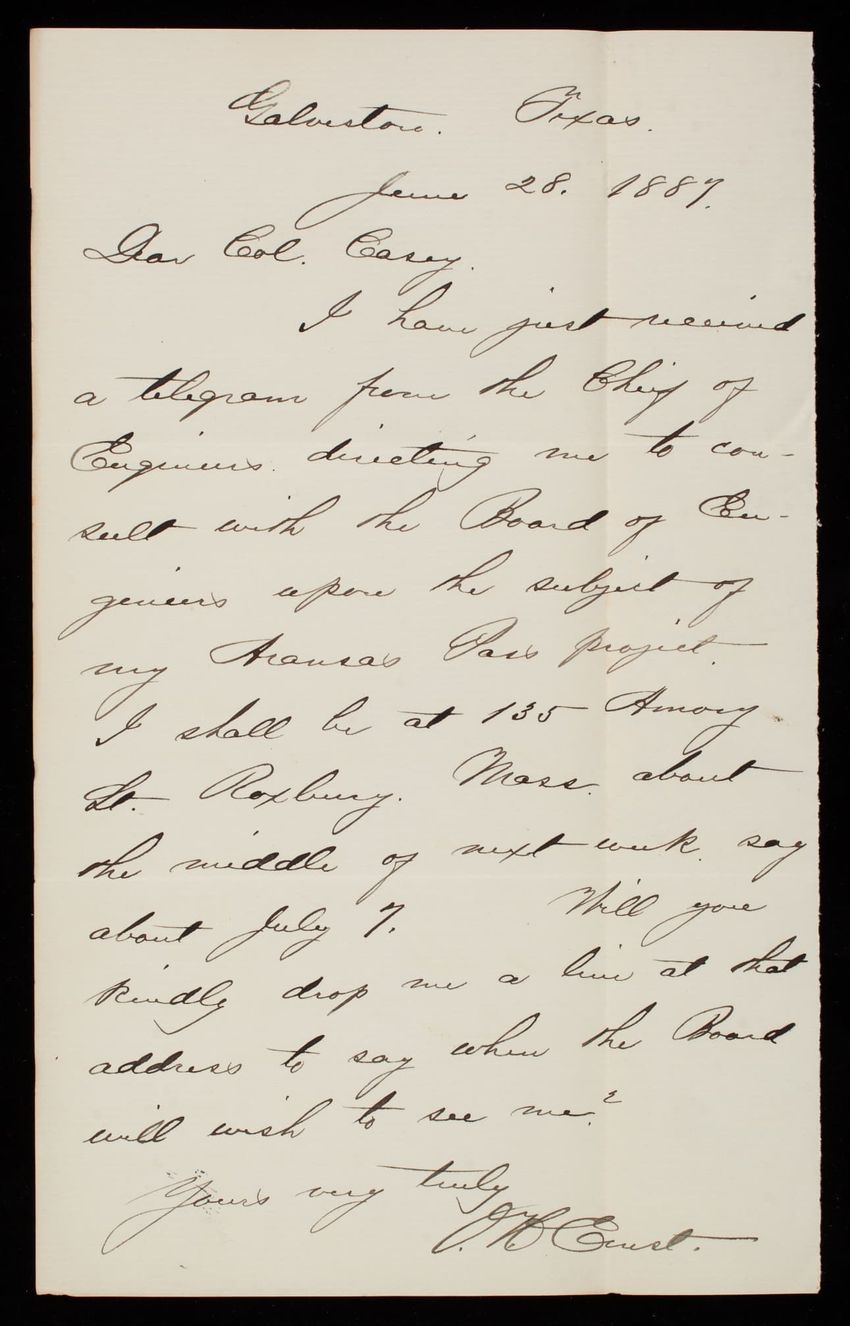 Galveston. Texas.
June 28. 1887.
Dear Col. Casey.
I have just received
a telegram from the Chief of
Engineers. directing me to con-
sult with the Board of En-
gineers upon the subject of
my Aransas Pass project.
I shall be at 135 Amory
St. Roxbury. Mass. about
the middle of next week. say
about July 7. Will you
kindly drop me a line at that
address to say when the Board
will wish to see me?
Yours very truly
O.H. Ernst.